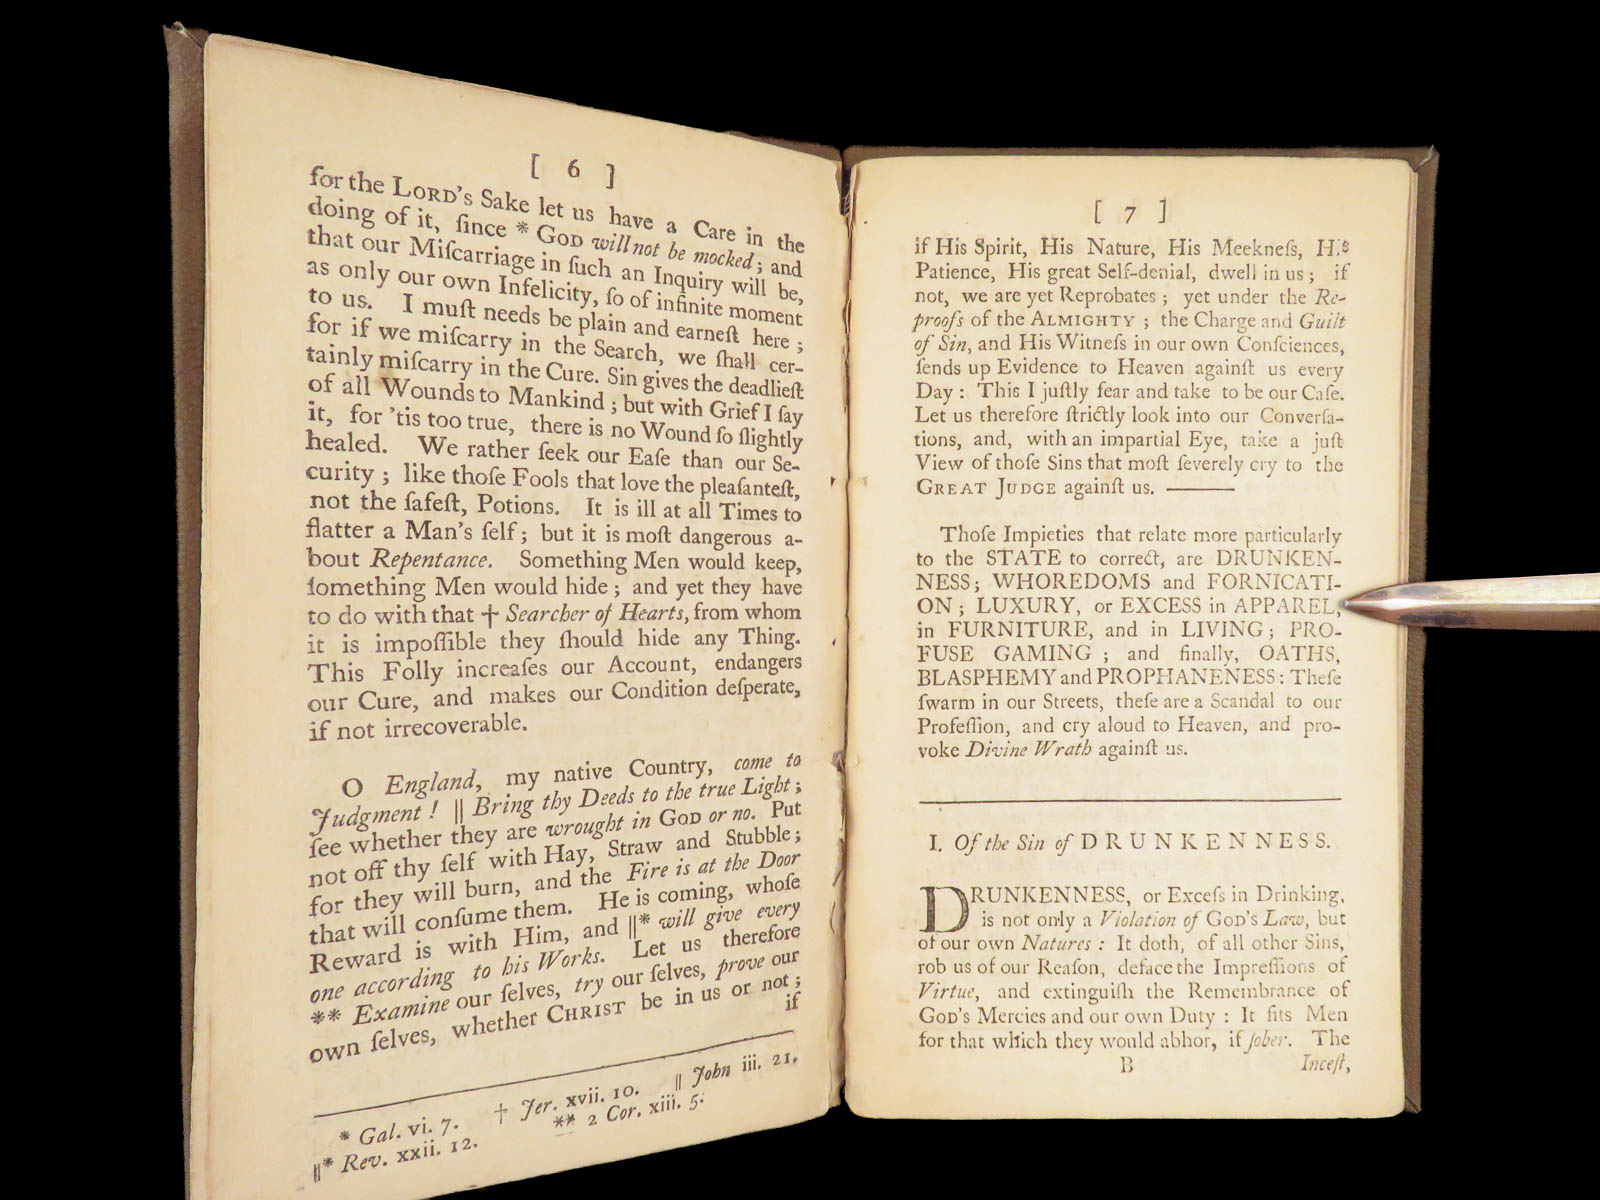 [ 6 ]
for the LORD's Sake let us have a Care in the
doing of it, ſince * GOD will not be mocked; and
that our Miſcarriage in ſuch an Inquiry will be,
as only our own Infelicity, ſo of infinite moment
to us. I muſt needs be plain and earneſt here;
for if we miſcarry in the Search, we ſhall cer-
tainly miſcarry in the Cure. Sin gives the deadlieſt
of all Wounds to Mankind; but with Grief I ſay
it, for 'tis too true, there is no Wound ſo ſlightly
healed. We rather ſeek our Eaſe than our Se-
curity; like thoſe Fools that love the pleaſanteſt,
not the ſafeſt, Potions. It is ill at all Times to
flatter a Man's ſelf; but it is moſt dangerous a-
bout Repentance. Something Men would keep,
ſomething Men would hide; and yet they have
to do with that † Searcher of Hearts, from whom
it is impoſſible they ſhould hide any Thing.
This Folly increaſes our Account, endangers
our Cure, and makes our Condition deſperate,
if not irrecoverable.
O England, my native Country, come to
Judgment! || Bring thy Deeds to the true Light;
ſee whether they are wrought in GOD or no. Put
not off thy ſelf with Hay, Straw and Stubble;
for they will burn, and the Fire is at the Door
that will conſume them. He is coming, whoſe
Reward is with Him, and ||* will give every
one according to his Works. Let us therefore
** Examine our ſelves, try our ſelves, prove our
own ſelves, whether CHRIST be in us or not;
if
* Gal. vi. 7. † Jer. xvii. 10. || John iii. 21.
||* Rev. xxii. 12. ** 2 Cor. xiii. 5.
[ 7 ]
if His Spirit, His Nature, His Meekneſs, His
Patience, His great Self-denial, dwell in us; if
not, we are yet Reprobates; yet under the Re-
proofs of the ALMIGHTY; the Charge and Guilt
of Sin, and His Witneſs in our own Conſciences,
ſends up Evidence to Heaven againſt us every
Day: This I juſtly fear and take to be our Caſe.
Let us therefore ſtrictly look into our Converſa-
tions, and, with an impartial Eye, take a juſt
View of thoſe Sins that moſt ſeverely cry to the
GREAT JUDGE againſt us. ———
Thoſe Impieties that relate more particularly
to the STATE to correct, are DRUNKEN-
NESS; WHOREDOMS and FORNICATI-
ON; LUXURY, or EXCESS in APPAREL,
in FURNITURE, and in LIVING; PRO-
FUSE GAMING; and finally, OATHS,
BLASPHEMY and PROPHANENESS: Theſe
ſwarm in our Streets, theſe are a Scandal to our
Profeſſion, and cry aloud to Heaven, and pro-
voke Divine Wrath againſt us.
I. Of the Sin of DRUNKENNESS.
DRUNKENNESS, or Exceſs in Drinking,
is not only a Violation of GOD's Law, but
of our own Natures: It doth, of all other Sins,
rob us of our Reaſon, deface the Impreſſions of
Virtue, and extinguiſh the Remembrance of
GOD's Mercies and our own Duty: It fits Men
for that which they would abhor, if ſober. The
B Inceſt,